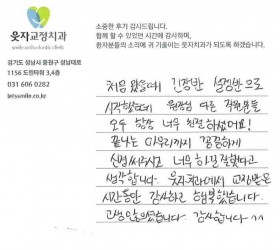 소중한 후기 감사드립니다.
함께 할 수 있었던 시간에 감사하며,
환자분들의 소리에 귀 기울이는 웃자치과가 되도록 하겠습니다.
웃자교정치과
smile orthodontic clinic
경기도 성남시 중원구 성남대로
1156 도전타워 3,4층
031 606 0282
letysmile.co.kr
처음 왔을때 긴장반 설렘반으로
시작했는데 원장님 다른 직원분들
모두 항상 너무 친절하셨어요!
끝나는 마무리까지 꼼꼼하게
신경써주시고 너무 하길 잘했다고
생각합니다. 웃자치과에서 교정받은
시간동안 감사하고 행복했습니다.
고생 많으셨습니다. 감사합니다 ^^